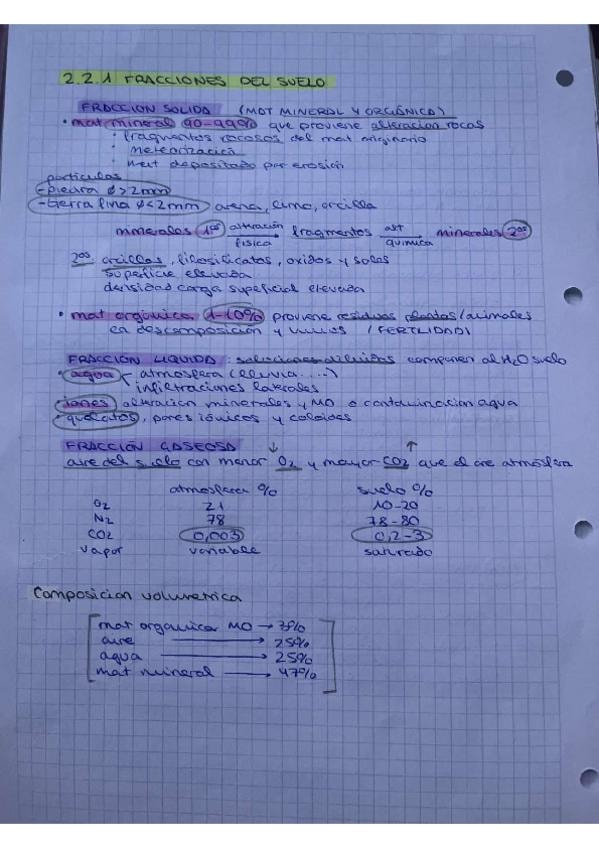 2.2.1 FRACCIONES DEL SUELO
FRACCION SOLIDA (MAT MINERAL Y ORGÁNICA)
• mat mineral 90-99% que proviene alteracion rocas
• fragmentos rocosos del mat originario
• meteorización
• mat depositado por erosión
particulas
-piedra ϕ>2mm
-tierra fina ϕ<2mm arena, limo, arcilla
minerales 1os alteración física → fragmentos alt química → minerales 2os
2os arcillas, filosilicatos, oxidos y sales
superficie elevada
densidad carga superficial elevada
• mat orgánica 1-10% proviene residuos plantas/animales
en descomposición y humus (FERTILIDAD)
FRACCION LIQUIDA: soluciones diluidas componen al H2O suelo
• agua atmósfera (lluvia....)
infiltraciones laterales
iones alteracion minerales y MO o contaminacion agua
• quelatos, pares iónicos y coloides
FRACCIÓN GASEOSA ↓ ↑
aire del suelo con menor O2 y mayor CO2 que el aire atmósfera
atmosfera % suelo %
O2 21 10-20
N2 78 78-80
CO2 0,003 0,2-3
vapor variable saturado
Composicion volumetrica
mat organica MO → 3%
aire → 25%
agua → 25%
mat mineral → 47%